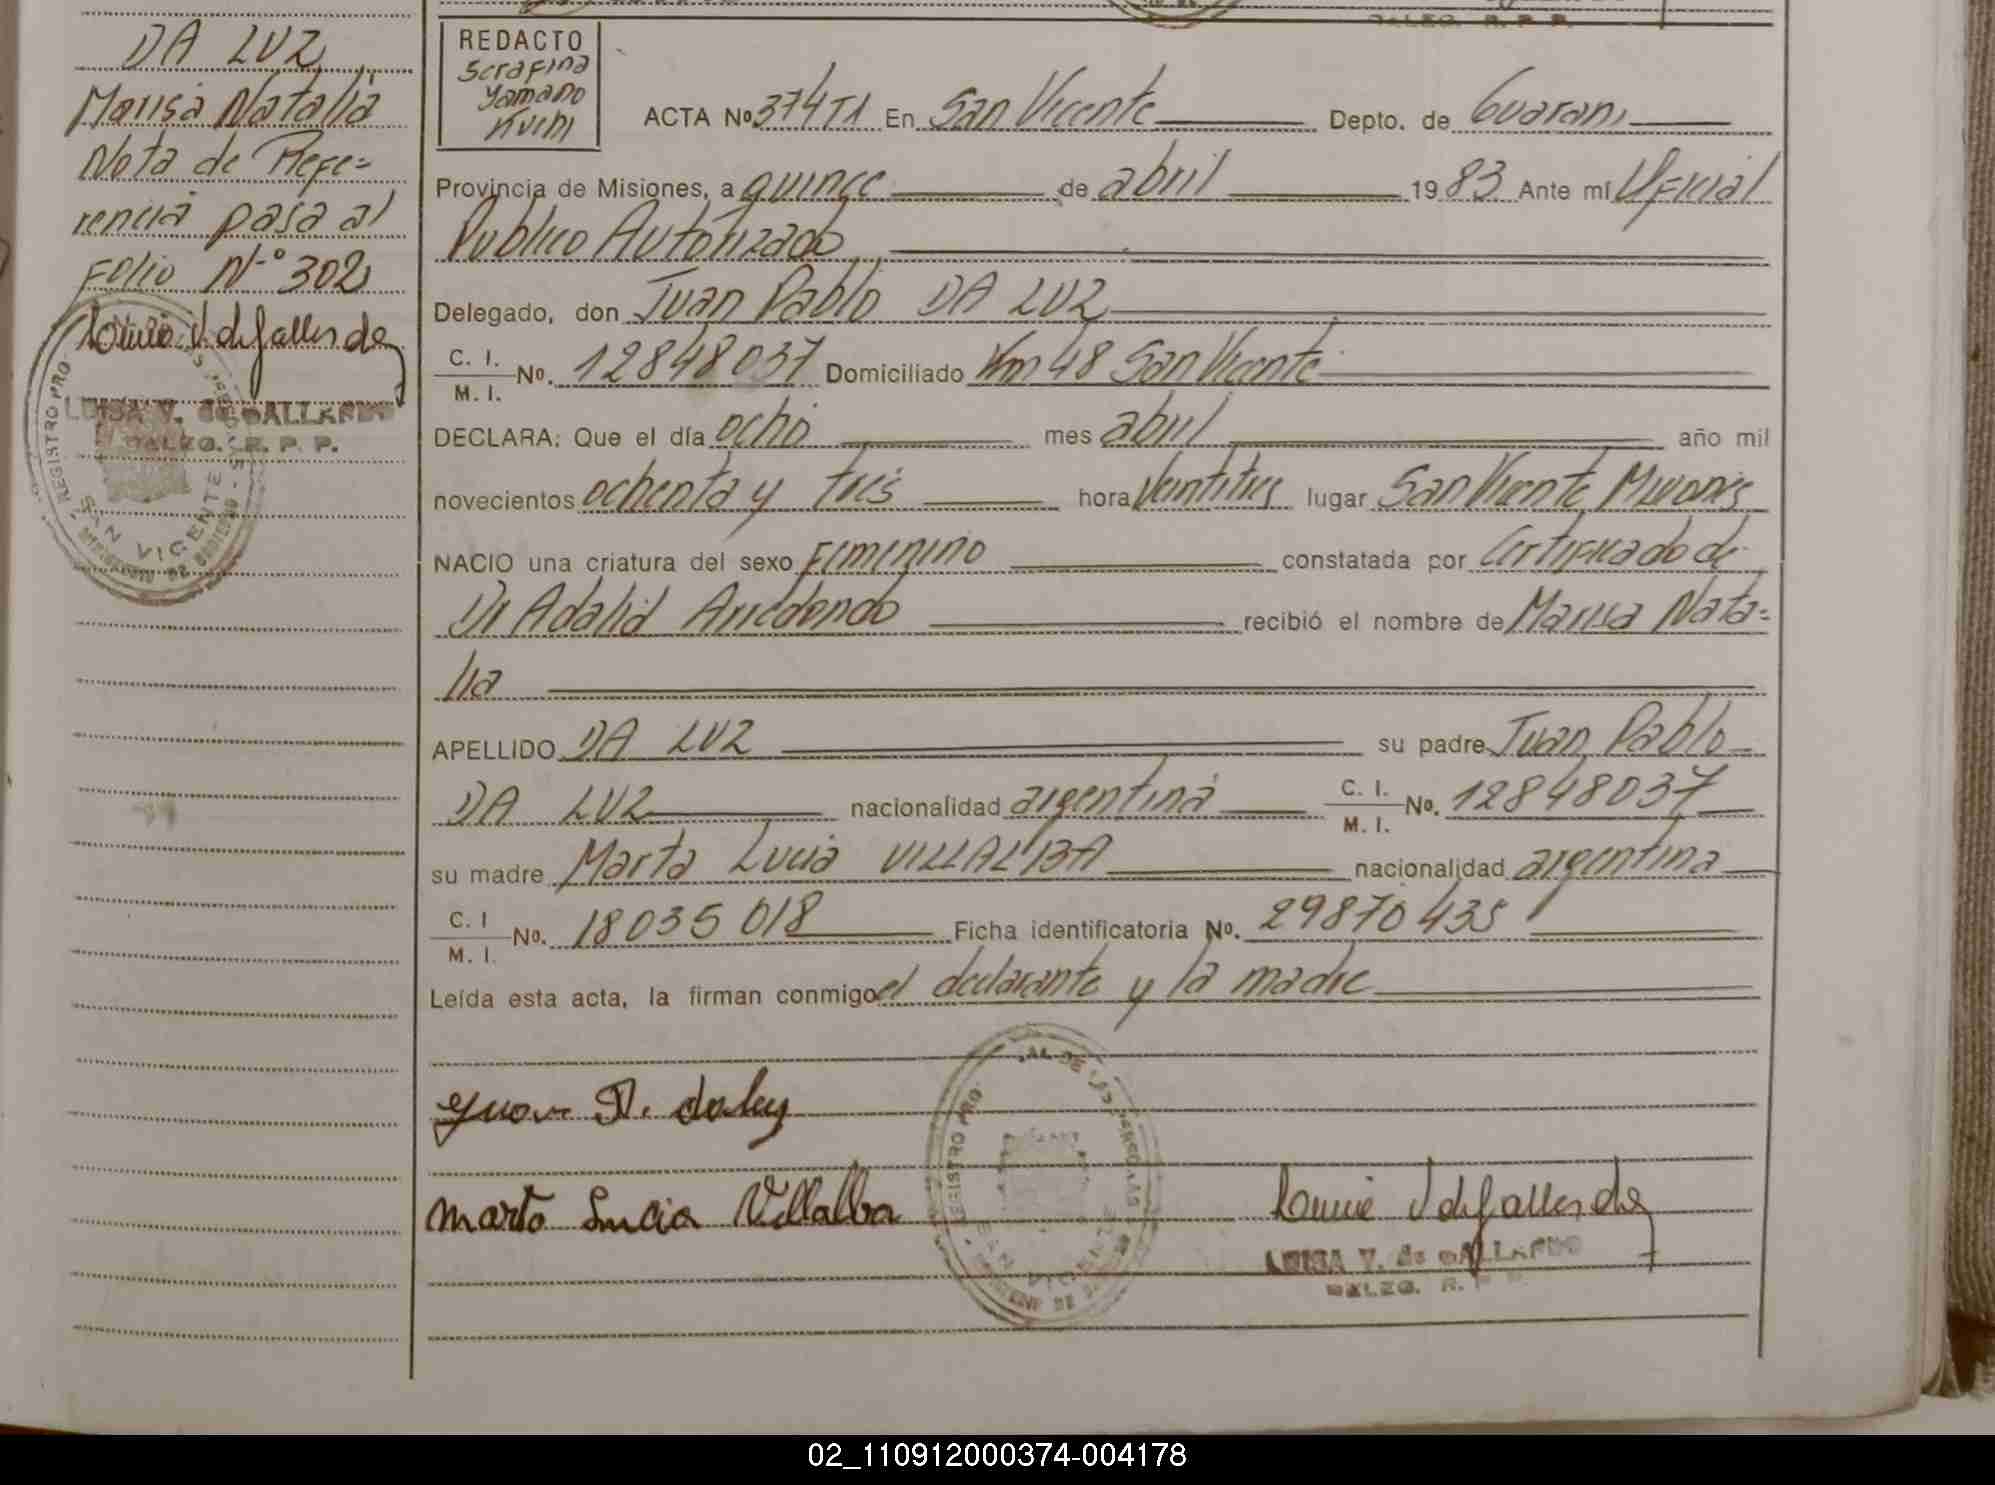 DA LUZ
Marisa Natalia
Nota de Refe=
rencia pasa al
Folio N° 302
LUISA V. de GALLARDO
DALEG. R. P. P.
REGISTRO PRO
SAN VICENTE
REDACTO
Serafina
Yamano
Kuchi
ACTA Nº 374 T1 En San Vicente Depto. de Guarani
Provincia de Misiones, a quince de abril 1983 Ante mí Oficial
Publico Autorizado
Delegado, don Juan Pablo DA LUZ
C. I.
M. I. Nº. 12848037 Domiciliado Km 48 San Vicente
DECLARA: Que el día ocho mes abril año mil
novecientos ochenta y tres hora veintitres lugar San Vicente Misiones
NACIO una criatura del sexo Femenino constatada por Certificado de
Dr Adalid Arredondo recibió el nombre de Marisa Nata=
lia
APELLIDO DA LUZ su padre Juan Pablo
DA LUZ nacionalidad argentina C. I.
M. I. Nº. 12848037
su madre Marta Lucia VILLALBA nacionalidad argentina
C. I
M. I. Nº. 18035018 Ficha identificatoria Nº. 29870435
Leída esta acta, la firman conmigo el declarante y la madre
Juan P. da luz
Marta Lucia Villalba
REGISTRO PRO
SAN VICENTE
LUISA V. de GALLARDO
DALEG. R. P.
02_110912000374-004178